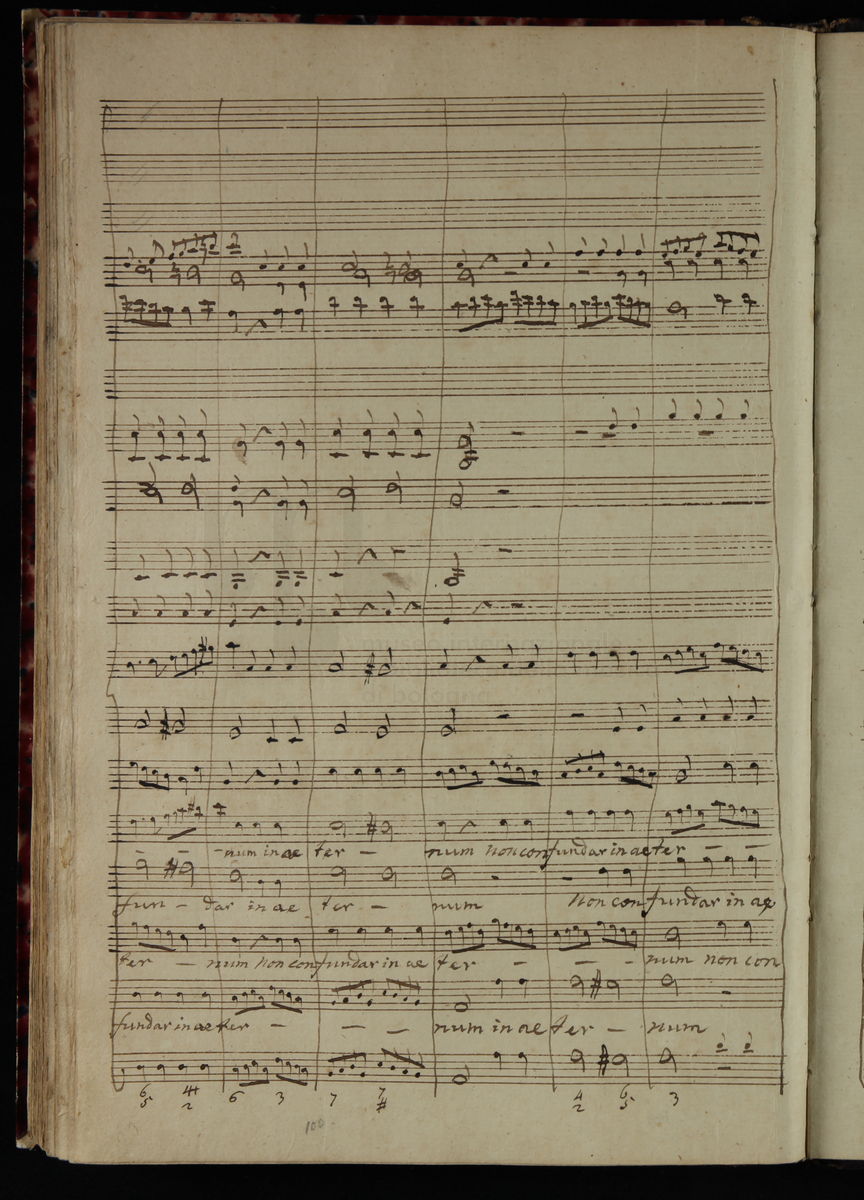 - - - num in ae ter - num non confundar in aeter - -
fun - dar in ae ter - num non confundar in ae
ter - num non confundar in ae ter - - - num non con
fundar in aeter - - - num in aeter - num
6 4 6 3 7 7 4 6 3
5 2 # 2 5
100